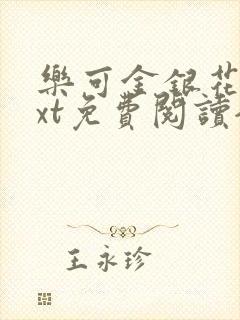 樂可金銀花
xt免費閱讀
王永珍